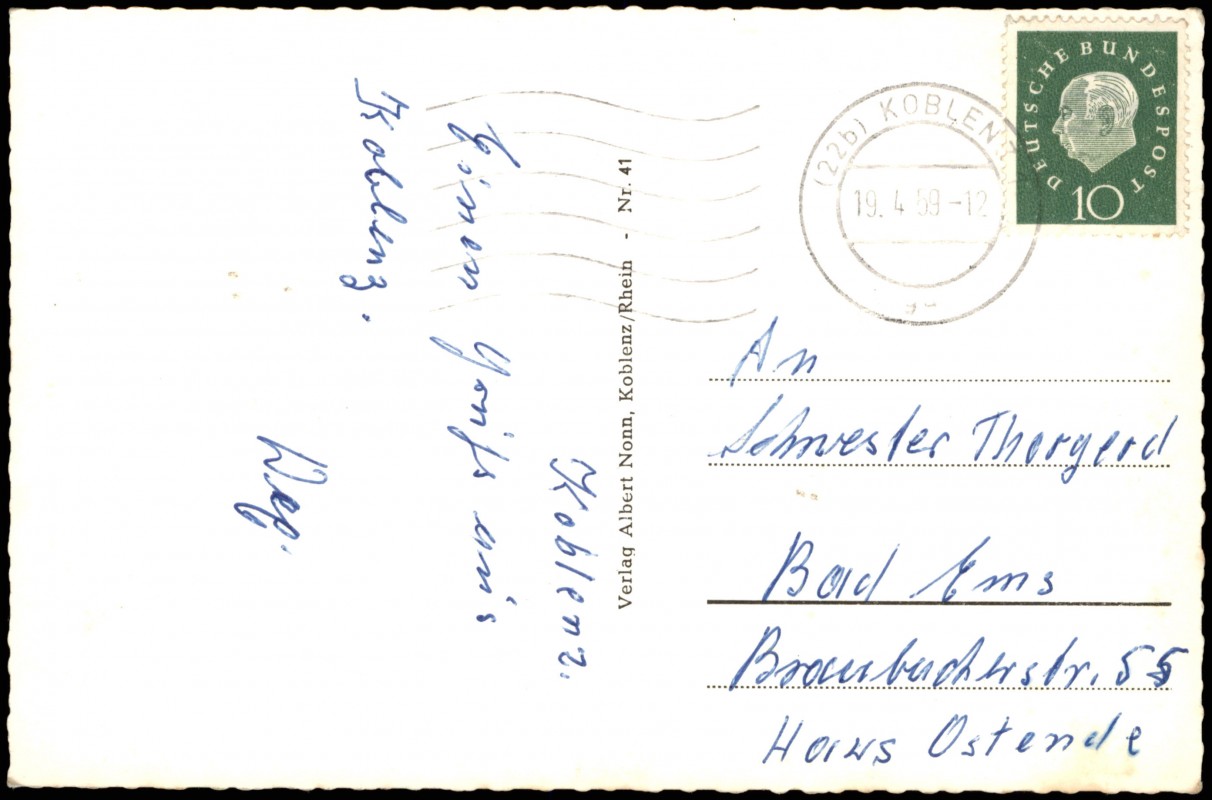 Koblenz.
Einen Gruß aus
Koblenz.
Verlag Albert Nonn, Koblenz/Rhein - Nr. 41
(22b) KOBLENZ
19. 4. 59 - 12
DEUTSCHE BUNDESPOST
10
An
Schwester Thorgerd
Bad Ems
Braubacherstr. 55
Haus Ostende